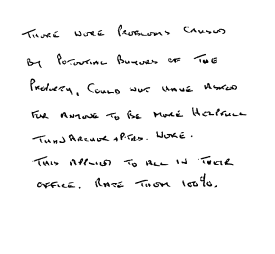 THERE WERE PROBLEMS CAUSED
BY POTENTIAL BUYERS OF THE
PROPERTY, COULD NOT HAVE ASKED
FOR ANYONE TO BE MORE HELPFULL
THAN ARCHER & PTRS. WERE.
THIS APPLIED TO ALL IN THEIR
OFFICE. RATE THEM 100%.